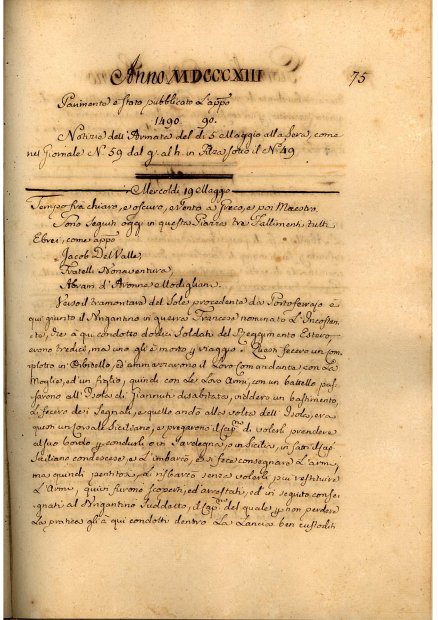 Anno MDCCCXIII 75
Parimente è stato pubblicato l'app.o
1490 90.
Notizia dell'Armata del dì 5 Maggio alla Sera, come
nel Giornale N.o 59 dal g. al h. in Filza sotto il N.o 49
Mercoldì 19 Maggio
Tempo frà chiaro, e oscuro, e Vento a Greco, e poi Maestro.
Sono seguiti oggi in questa Piazza tre Fallimenti tutti
Ebrei, come app.o
Jacob Del Valle,
Fratelli Bonaventura,
Abram d'Avonne e Modigliani.
Verso il tramontara del Sole procedente da Portoferrajo è
qui giunto il Brigantino in guerra Francese nominato L'Incosten-
te, che à qui condotto dodici Soldati del Reggimento Estero,
erono tredici, ma uno gli è morto p viaggio. Questi fecero un com-
plotto in Orbitello, ed ammazzarono il Loro Comandante con La
Moglie, ed un figlio, quindi con Le Loro Armi, con un battello pas-
sarono all'Isola di Giannuti disabitata, viddero un bastimento,
Li fecero dei Segnali, e quello andò alla volta dell'Isola, era
questi un Corsale Siciliano, e pregarono il Cap.no di volerli prendere
al suo bordo, e condurli, o in Sardegna, o in Sicilia, in fatti il Cap.no
Siciliano condescese, e L'imbarcò, e si fece consegnare L'armi,
ma quindi pentito, Li risbarcò senza volerli più restituire
L'Armi, quivi furono scoperti, ed arrestati, ed in seguito conse-
gnati al Brigantino Suddetto, il Cap.no del quale p non perdere
La pratica gli à qui condotti dentro La Lancia ben custoditi